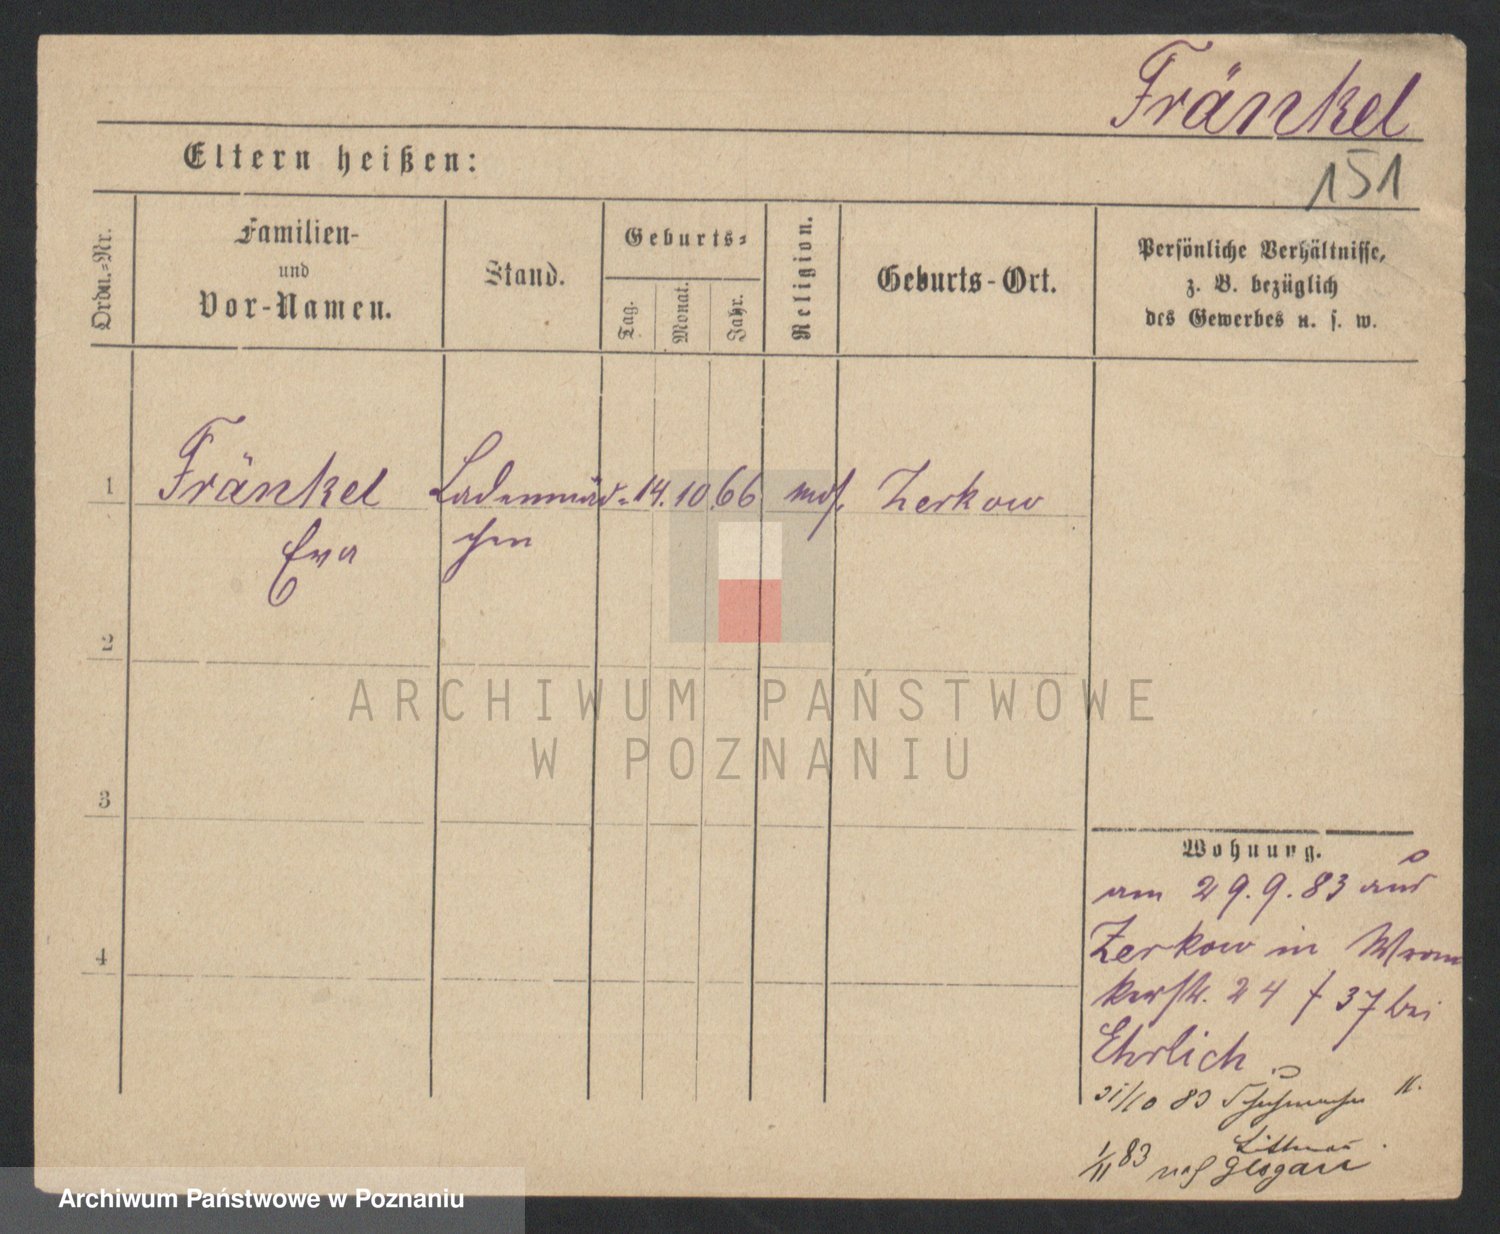 Fränkel
151
Eltern heißen:
Ordn.-Nr.
Familien-
und
Vor-Namen.
Stand.
Geburts-
Tag.
Monat.
Jahr.
Religion.
Geburts-Ort.
Persönliche Verhältnisse,
z. B. bezüglich
des Gewerbes u. s. w.
1
Fränkel Ladenmäd- 14. 10. 66 mos. Zerkow
Eva chen
2
3
4
Wohnung.
am 29.9.83 aus
Zerkow in Wron
kerstr. 24 / 37 bei
Ehrlich
31/10 83 Schuhmacher 11.
1/11 83 nach Glogau
ARCHIWUM PAŃSTWOWE
W POZNANIU
Archiwum Państwowe w Poznaniu